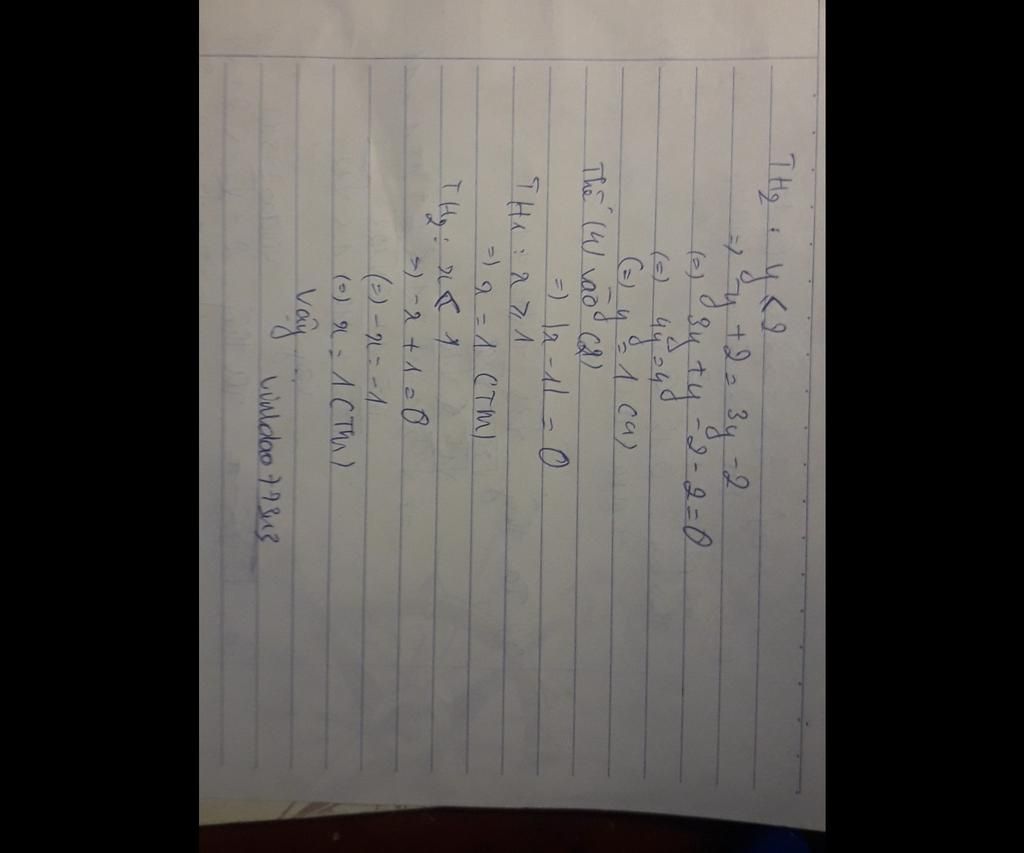 TH2 : y < 2
=> -y + 2 = 3y - 2
(=) 3y + y - 2 - 2 = 0
(=) 4y = 4
(=) y = 1 (4)
Thế (4) vào (2)
=> |x - 1| = 0
TH1 : x ≥ 1
=> x = 1 (TM)
TH2 : x < 1
=> -x + 1 = 0
(=) -x = -1
(=) x = 1 (TM)
Vậy